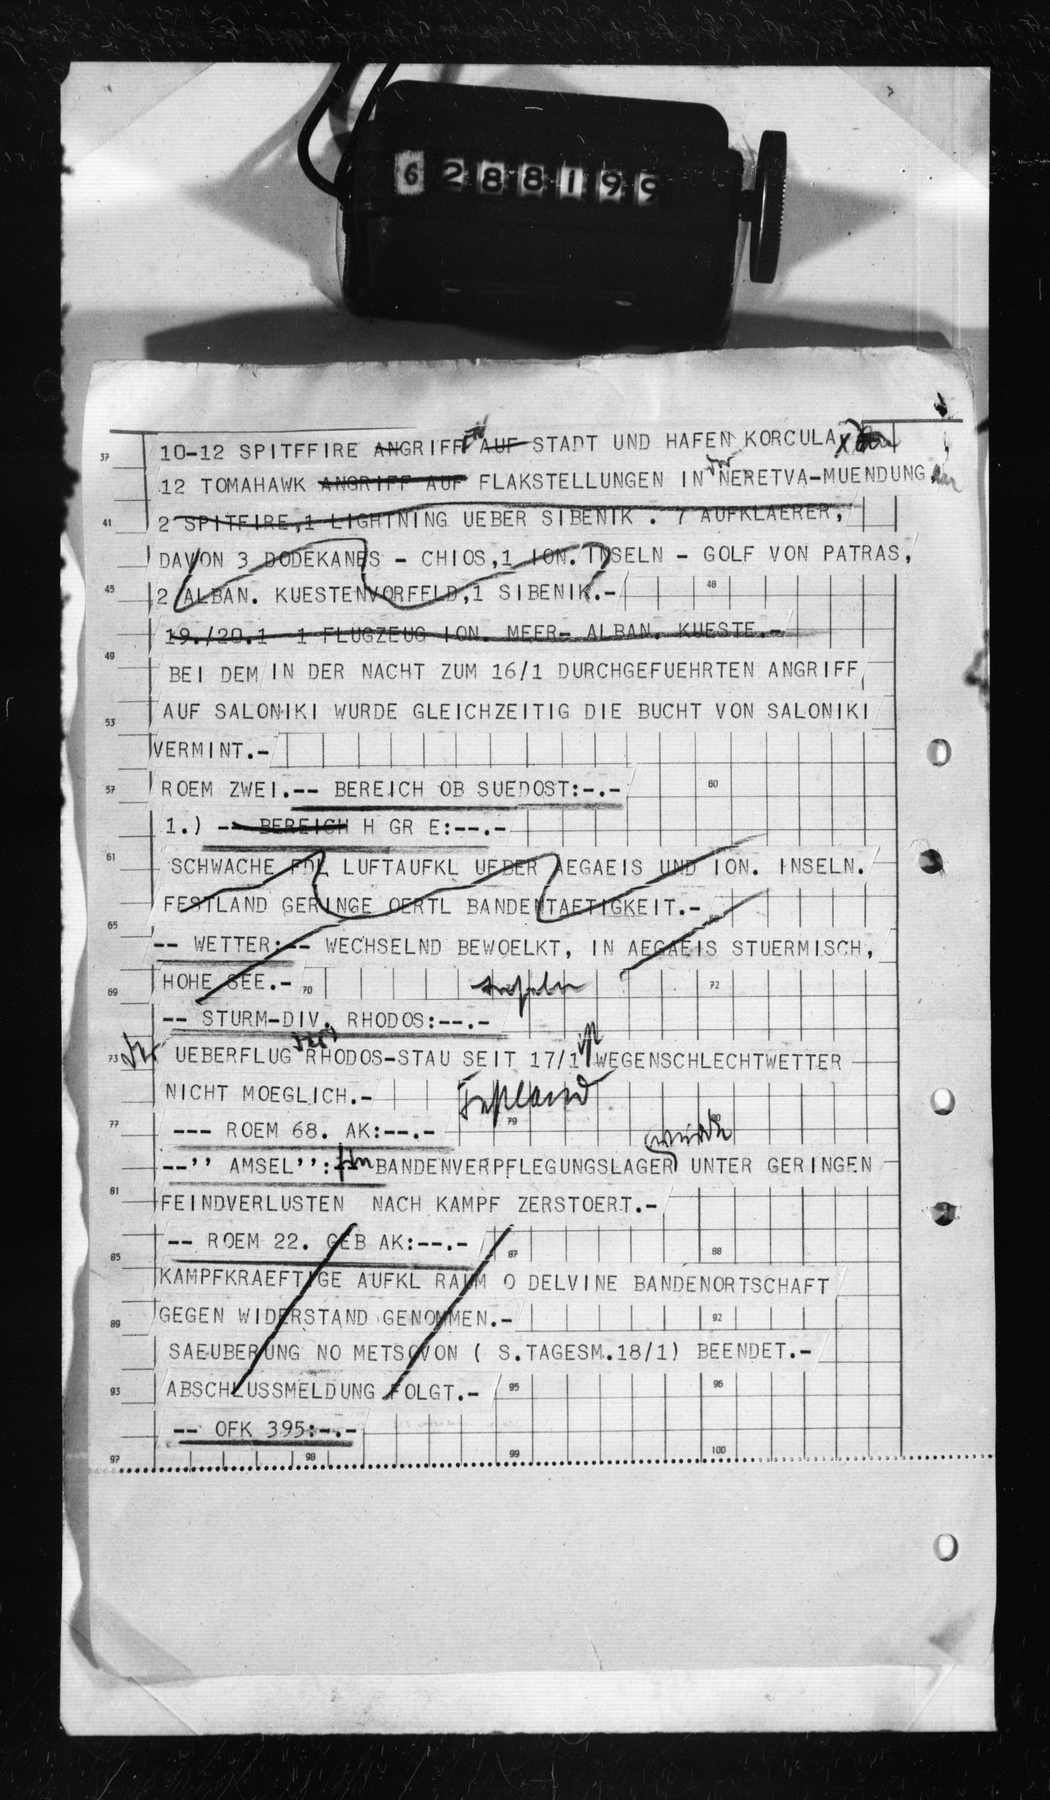 6288199
37 10-12 SPITFFIRE ANGRIFF AUF STADT UND HAFEN KORCULA
12 TOMAHAWK ANGRIFF AUF FLAKSTELLUNGEN IN NERETVA-MUENDUNG
41 2 SPITFIRE,1 LIGHTNING UEBER SIBENIK . 7 AUFKLAERER,
DAVON 3 DODEKANES - CHIOS,1 ION. INSELN - GOLF VON PATRAS,
45 2 ALBAN. KUESTENVORFELD,1 SIBENIK.- 48
19./20.1 1 FLUGZEUG ION. MEER- ALBAN. KUESTE.-
49 BEI DEM IN DER NACHT ZUM 16/1 DURCHGEFUEHRTEN ANGRIFF
53 AUF SALONIKI WURDE GLEICHZEITIG DIE BUCHT VON SALONIKI
VERMINT.-
57 ROEM ZWEI.-- BEREICH OB SUEDOST:-.- 60
1.) -- BEREICH H GR E:--.-
61 SCHWACHE FDL LUFTAUFKL UEBER AEGAEIS UND ION. INSELN.
FESTLAND GERINGE OERTL BANDENTAETIGKEIT.-
65 -- WETTER:-- WECHSELND BEWOELKT, IN AEGAEIS STUERMISCH,
69 HOHE SEE.- 70 72
-- STURM-DIV. RHODOS:--.-
73 UEBERFLUG RHODOS-STAU SEIT 17/1 WEGENSCHLECHTWETTER
NICHT MOEGLICH.-
Festland
79 80
77 --- ROEM 68. AK:--.-
wurde
--'' AMSEL'': BANDENVERPFLEGUNGSLAGER UNTER GERINGEN
81 FEINDVERLUSTEN NACH KAMPF ZERSTOERT.-
85 -- ROEM 22. GEB AK:--.- 87 88
KAMPFKRAEFTIGE AUFKL RAUM O DELVINE BANDENORTSCHAFT
89 GEGEN WIDERSTAND GENOMMEN.- 92
SAEUBERUNG NO METSOVON ( S.TAGESM.18/1) BEENDET.-
93 ABSCHLUSSMELDUNG FOLGT.- 95 96
-- OFK 395:-.-
97 98 99 100